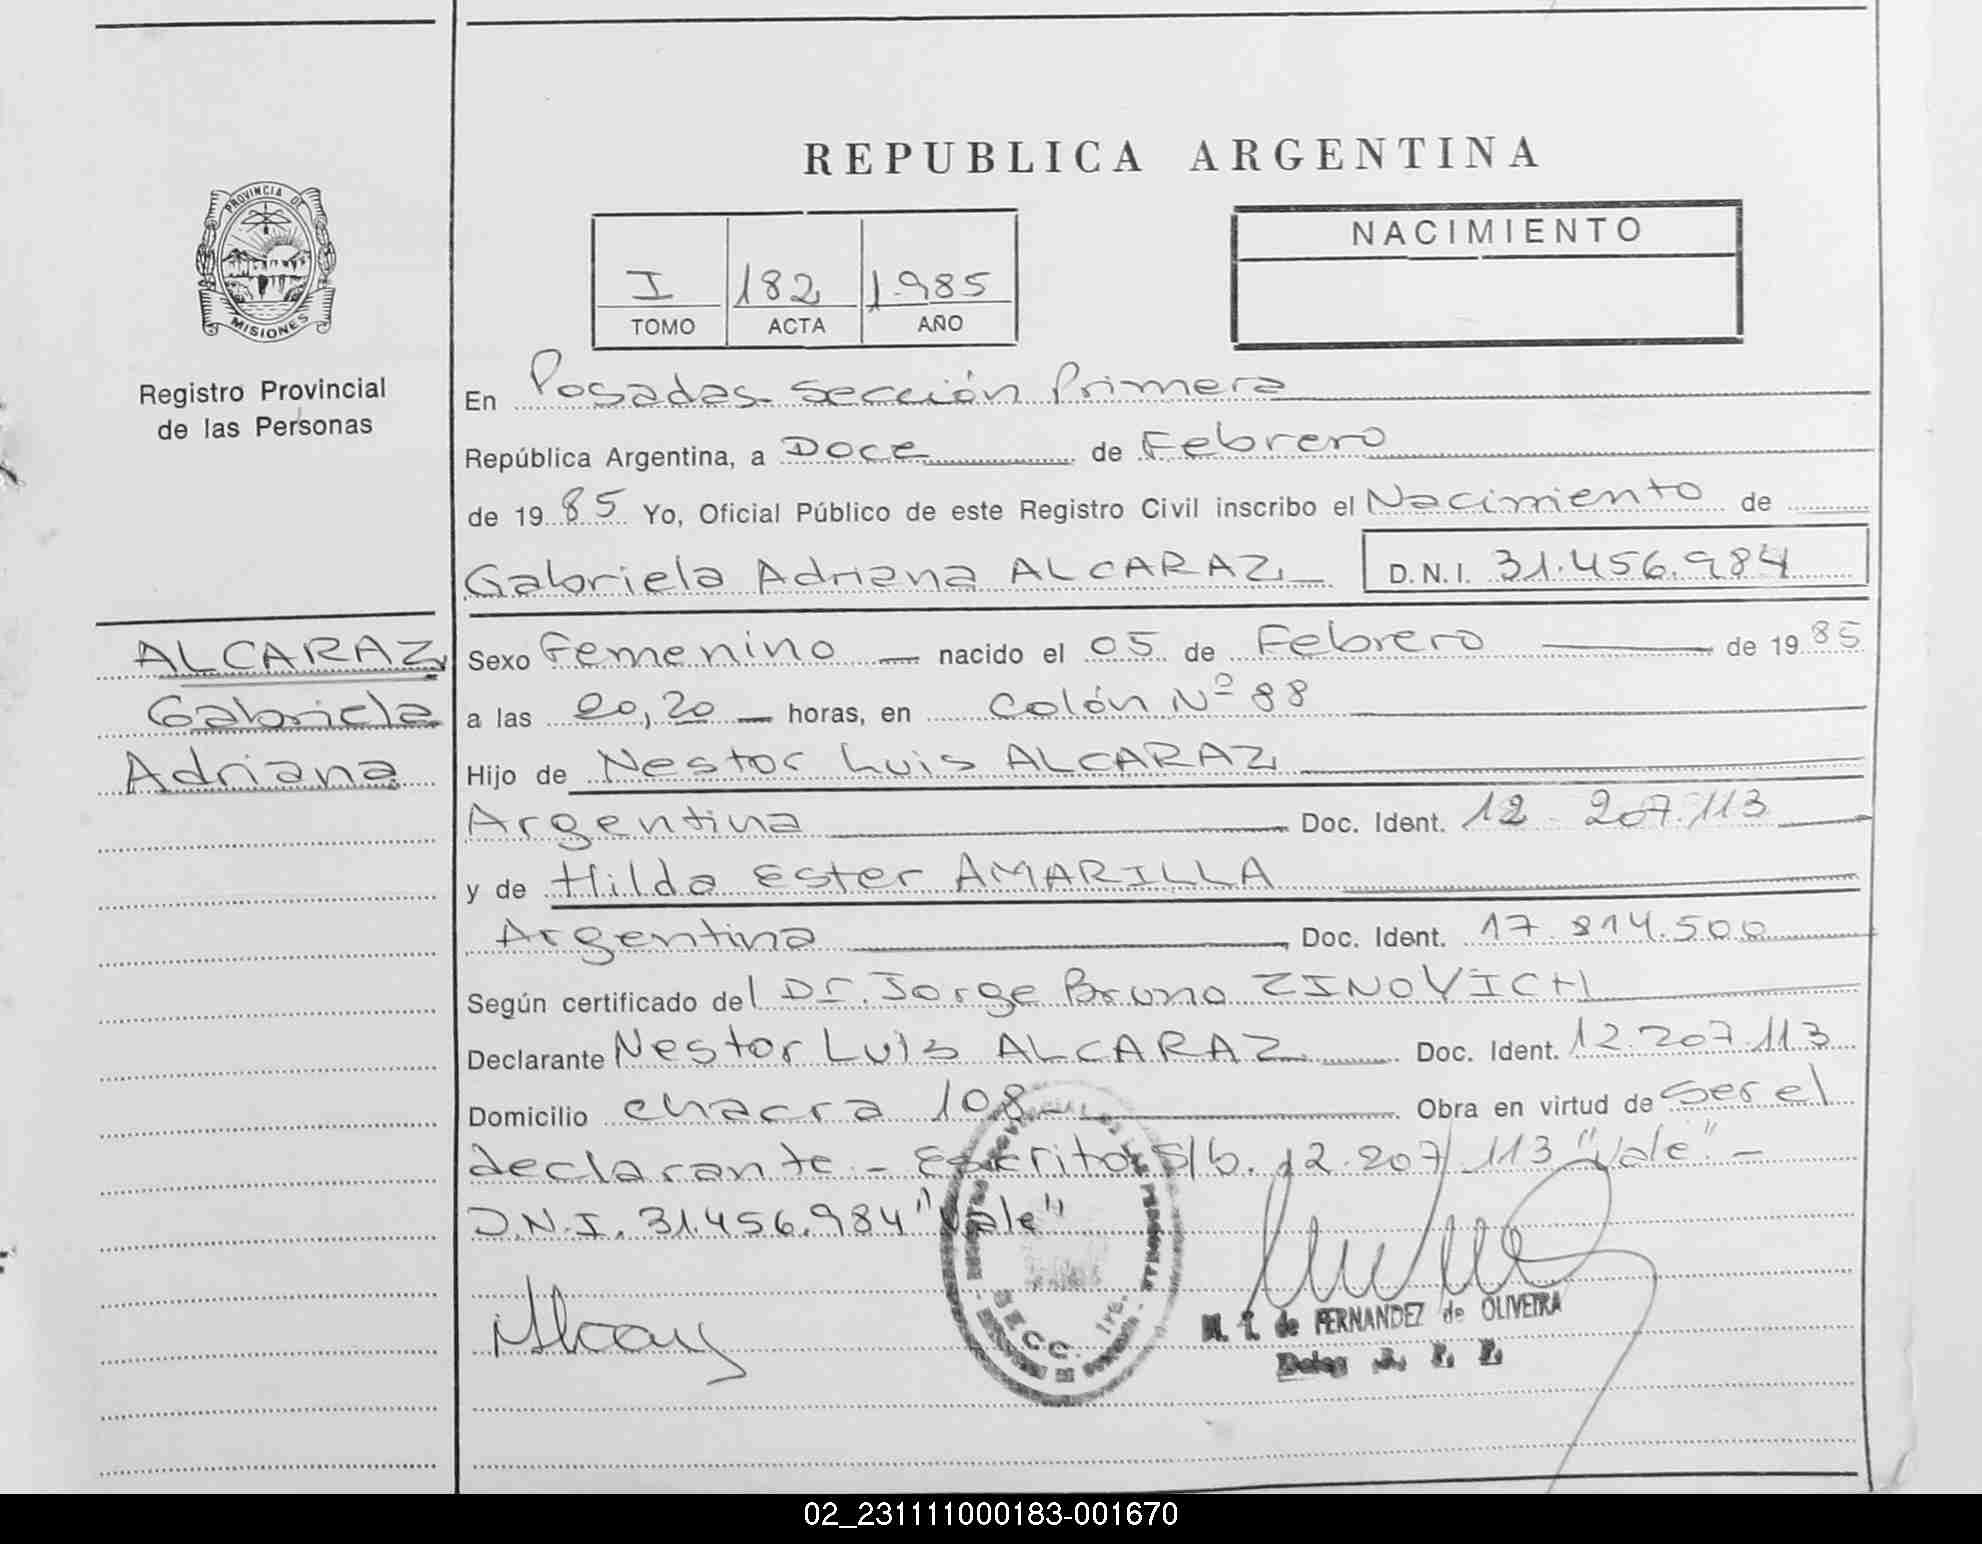 REPUBLICA ARGENTINA
PROVINCIA DE
MISIONES
Registro Provincial
de las Personas
I 182 1.985
TOMO ACTA AÑO
NACIMIENTO
En Posadas Sección Primera
República Argentina, a Doce de Febrero
de 1985 Yo, Oficial Público de este Registro Civil inscribo el Nacimiento de
Gabriela Adriana ALCARAZ D.N.I. 31.456.984
ALCARAZ
Gabriela
Adriana
Sexo Femenino nacido el 05 de Febrero de 1985
a las 20,20 horas, en Colón Nº 88
Hijo de Nestor Luis ALCARAZ
Argentina Doc. Ident. 12.207.113
y de Hilda Ester AMARILLA
Argentina Doc. Ident. 17.814.500
Según certificado del Dr. Jorge Bruno ZINOVICH
Declarante Nestor Luis ALCARAZ Doc. Ident. 12.207.113
Domicilio chacra 108 Obra en virtud de ser el
declarante.- Escrito s/b. 12.207.113 "Vale" -
D.N.I. 31.456.984 "Vale"
SECC. 1ra.
M. T. de FERNANDEZ de OLIVEIRA
02_231111000183-001670